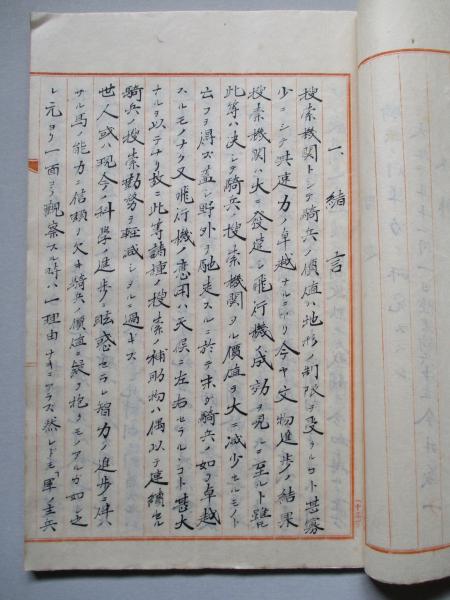 一、緒言
搜索機関トシテ騎兵ノ價値ハ地形ノ制限ヲ受クルコト甚寡
少ニシテ其速力ノ卓越ナルニ在リ今ヤ文物進歩ノ結果
搜索機関ハ大ニ發達シ飛行機ノ成功ヲ見ルニ至ルト雖
此等ハ決シテ騎兵ノ搜索機関タル價値ヲ大ニ減少セルモノト
云フヲ得ス蓋シ野外ヲ馳走スルニ於テ未タ騎兵ノ如ク卓越
スルモノナク又飛行機ノ應用ハ天候ニ左右セラルヽコト甚大
ナルヲ以テナリ故ニ此等諸種ノ搜索ノ補助物ハ偶以テ連續セル
騎兵ノ搜索勤労ヲ輕減シタルニ過キス
世人或ハ現今ノ科學ノ進歩ニ眩惑セラレ智力ノ進歩ニ伴ハ
サル馬ノ能力ニ信頼ヲ欠キ騎兵ノ價値ニ疑ヲ抱クモノアルカ如シ之
レ元ヨリ一面ヨリ觀察スル時ハ一理由ナキニアラス然レトモ「軍ノ主兵